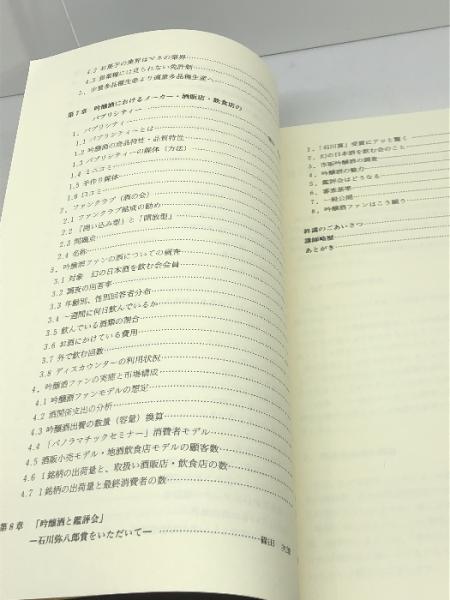 4.2 お菓子の業界はマネの業界
4.3 他業種には見られない免許制
5、少量多品種生産より適量多品種生産へ
第7章 吟醸酒におけるメーカー・酒販店・飲食店の
パブリシティー
1、パブリシティー
1.1 パブリシティーとは
1.2 吟醸酒の商品特性・品質特性
1.3 パブリシティーの媒体(方法)
1.4 ミニコミ
1.5 手作り媒体
1.6 口コミ
2、ファンクラブ(酒の会)
2.1 ファンクラブ組成の勧め
2.2 「囲い込み型」と「開放型」
2.3 問題点
2.4 名称
3、吟醸酒ファンの酒についての調査
3.1 対象 幻の日本酒を飲む会会員
3.2 調査の回答率
3.3 年齢別、性別回答者分布
3.4 一週間に何日飲んでいるか
3.5 飲んでいる酒類の割合
3.6 お酒にかけている費用
3.7 外で飲む回数
3.8 ディスカウンターの利用状況
4、吟醸酒ファンの実態と市場構成
4.1 吟醸酒ファンモデルの想定
4.2 酒関係支出の分析
4.3 吟醸酒出費の数量(容量)換算
4.4 「パノラマチックセミナー」消費者モデル
4.5 酒販小売モデル・地酒飲食店モデルの顧客数
4.6 1銘柄の出荷量と、取扱い酒販店・飲食店の数
4.7 1銘柄の出荷量と最終消費者の数
第8章 「吟醸酒と鑑評会」
―石川弥八郎賞をいただいて― 篠田 次郎
1、「石川賞」受賞にアッと驚く
2、幻の日本酒を飲む会のこと
3、市販吟醸酒の調査
4、吟醸酒の魅力
5、鑑評会はどうなる
6、審査基準
7、一般公開
8、吟醸酒ファンはこう願う
終講のごあいさつ
講師略歴
あとがき